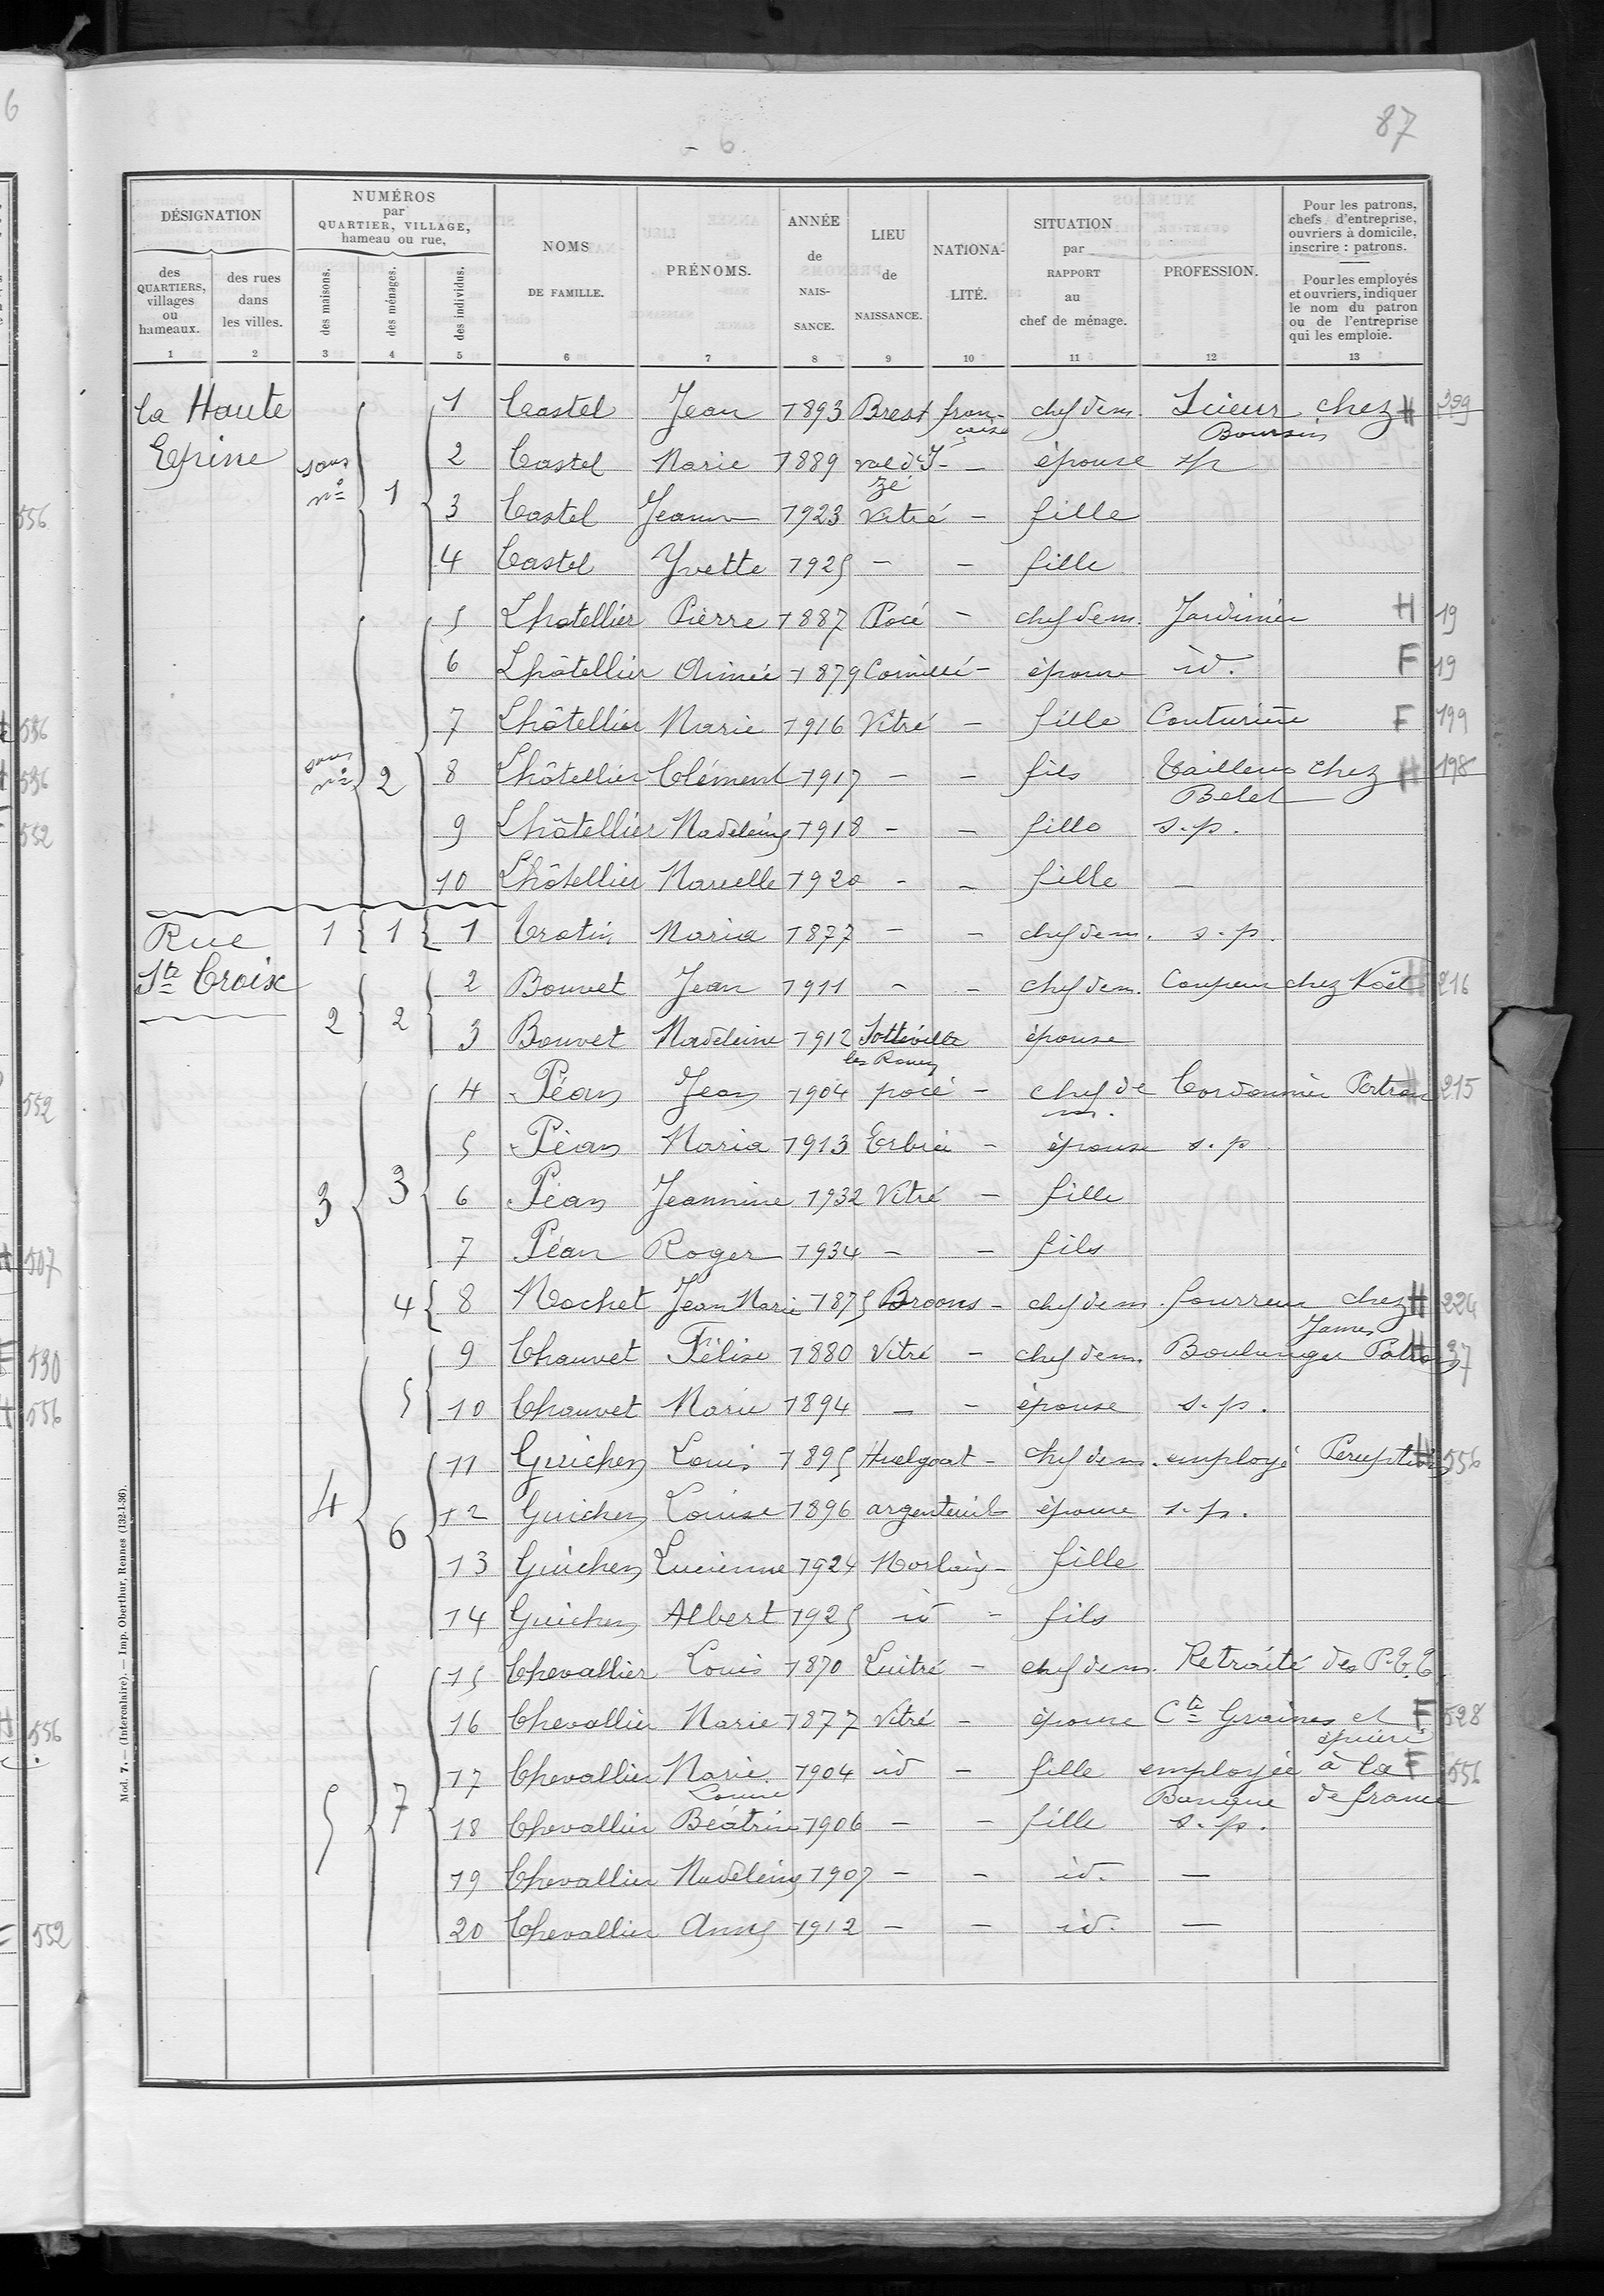 87
- 6.
DÉSIGNATION
des QUARTIERS, villages ou hameaux.
des rues dans les villes.
NUMÉROS par QUARTIER, VILLAGE, hameau ou rue,
des maisons.
des ménages.
des individus.
NOMS DE FAMILLE.
PRÉNOMS.
ANNÉE de NAIS- SANCE.
LIEU de NAISSANCE.
NATIONA- LITÉ.
SITUATION par RAPPORT au chef de ménage.
PROFESSION.
Pour les patrons, chefs d'entreprise, ouvriers à domicile, inscrire : patrons.
Pour les employés et ouvriers, indiquer le nom du patron ou de l'entreprise qui les emploie.
1 2 3 4 5 6 7 8 9 10 11 12 13
la Haute Epine
sans nº 1
1 Castel Jean 1893 Brest française chef de m. Scieur chez Boursin H 399
2 Castel Marie 1889 val d'Izé - épouse sp
3 Castel Jeanne 1923 Vitré - fille
4 Castel Yvette 1925 - - fille
sans nº 2
5 Lhotellier Pierre 1887 Pocé - chef de m. Jardinier H 19
6 Lhôtellier Aimée 1879 Cornillé - épouse id. F 19
7 Lhôtellier Marie 1916 Vitré - fille Couturière F 199
8 Lhôtellier Clément 1917 - - fils Tailleur chez Belet H 198
9 Lhôtellier Madeleine 1918 - - fille s.p.
10 Lhôtellier Marcelle 1920 - - fille -
Rue Ste Croix
1 1 1 Trotin Maria 1877 - - chef de m. s.p.
2 2 2 Bouvet Jean 1911 - - chef de m. Coupeur chez Noël 216
3 Bouvet Madeleine 1912 Sotteville les Rouen épouse
3 3 4 Péan Jean 1904 pocé - chef de m. Cordonnier Patron 215
5 Péan Maria 1913 Erbrée - épouse s.p.
6 Péan Jeannine 1932 Vitré - fille
7 Péan Roger 1934 - - fils
4 8 Mochet Jean Marie 1875 Broons - chef de m. fourreur chez James H 224
4 5 9 Chauvet Félix 1880 Vitré - chef de m. Boulanger Patron H 37
10 Chauvet Marie 1894 - - épouse s.p.
6 11 Guichen Louis 1895 Huelgoat - chef de m. employé Perception H 556
12 Guichen Louise 1896 argenteuil épouse s.p.
13 Guichen Lucienne 1924 Morlaix - fille
14 Guichen Albert 1925 id - fils
5 7 15 Chevallier Louis 1870 Luitré - chef de m. Retraité des P.T.T.
16 Chevallier Marie 1877 Vitré - épouse Cte Graines et épicerie F 528
17 Chevallier Marie Louise 1904 id - fille employée à la Banque de france F 556
18 Chevallier Béatrix 1906 - - fille s.p.
19 Chevallier Madeleine 1907 - - id. -
20 Chevallier Anne 1912 - - id. -
Mod. 7. — (Intercalaire). — Imp. Oberthur, Rennes (132-1-36).
6
556
556
556
552
552
507
530
556
556
552